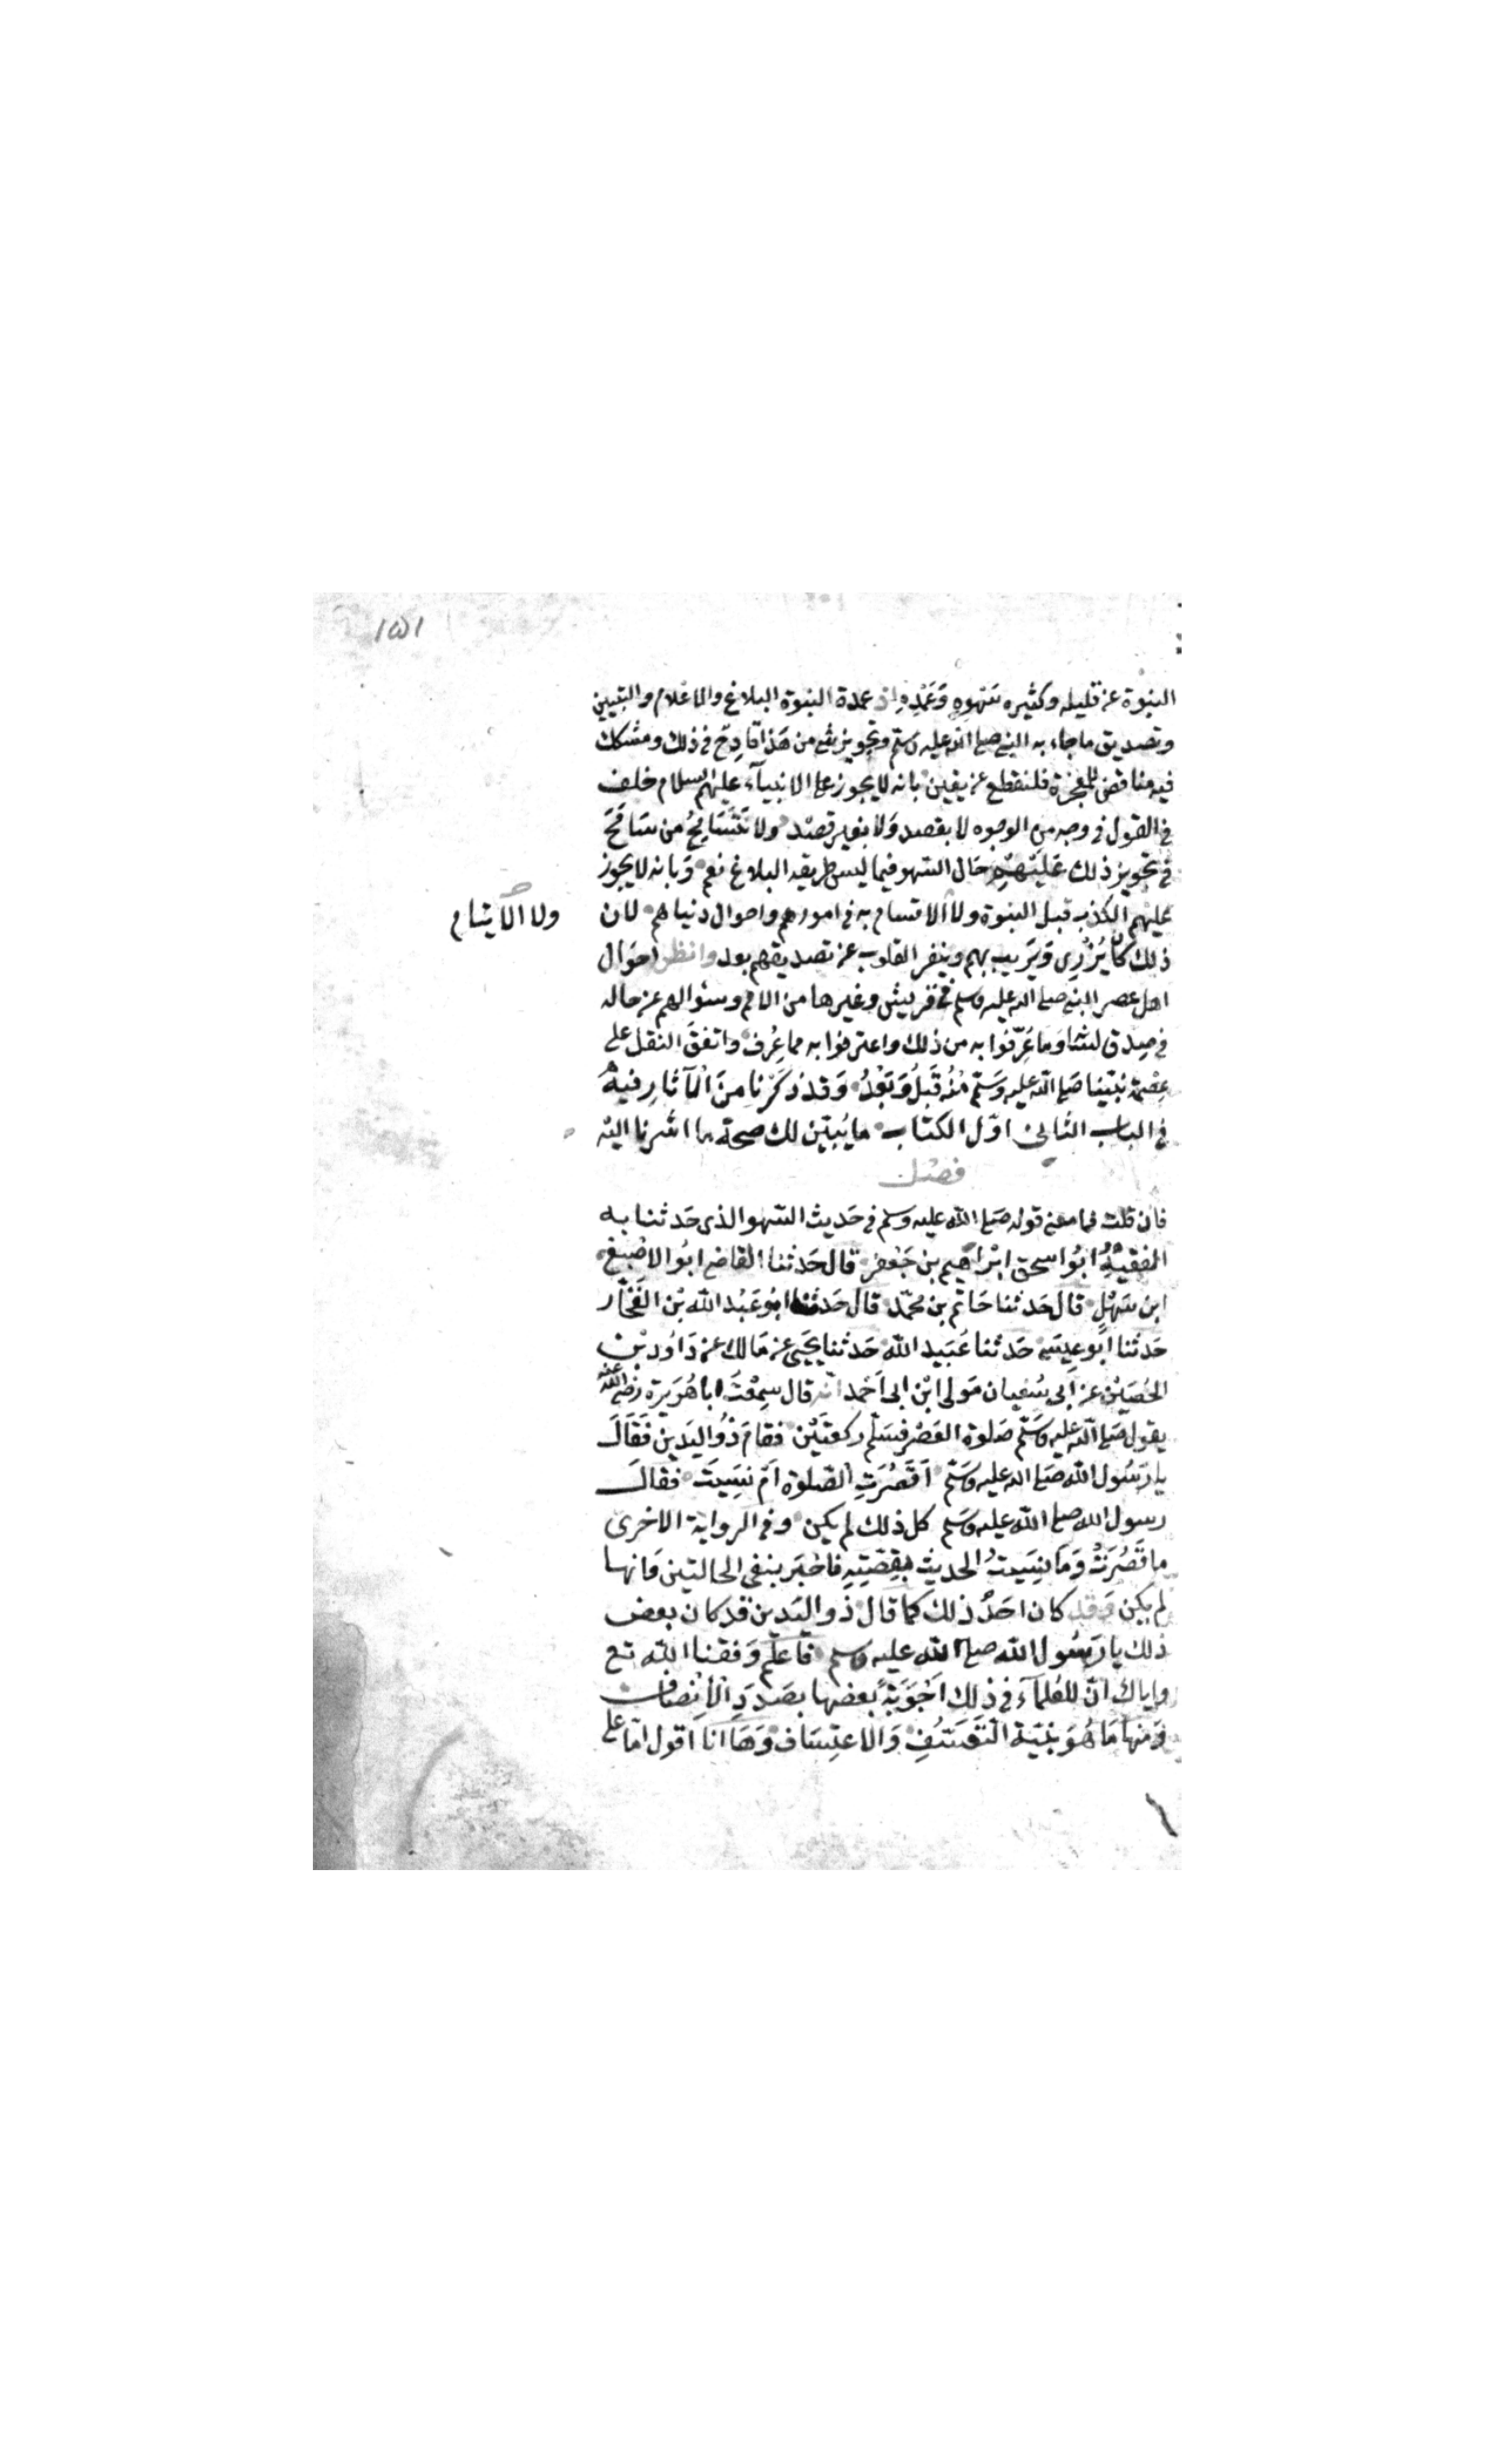 ١٥١
النبوة عن قليله وكثيره سَهْوِهِ وَعَمْدِهِ إذ عمدة النبوة البلاغ والاعلام والتبيين
وتصديق ماجاء به النبي صلى الله عليه وسلم وتجويز شئ من هَذا قادِحٌ في ذلك ومشكك
فيه مناقض للمعجزة فلنقطع عن يقين بانه لا يجوز على الانبيآء عليهم السلام خلف
في القول في وجه من الوجوه لا بقصد وَلا بغير قصْد ولا تَتَسَامَحُ من سَامَحَ
في تجويز ذلك عَلَيْهِم حَال السّهو فيما ليس طريقه البلاغ نعم وَبانه لا يجوز
عليهم الكذب قبل النبوة ولا الاتسام به في امورهم واحوال دنياهم لان
ولا الاتسام
ذلك كان يُزْرِى وَيَريب بهم وينفر القلوب عن تصديقهم بعد وانظر احَوَال
اهل عصر النبي صلى الله عليه وسلم في قريش وغيرها من الامم وسئوالهم عن حاله
في صِدق لسَانه وَما عُرِّفوا به من ذلك واعترفوا به مما عُرِف واتفقَ النقل على
عِصْمة نبيّنا صَلى اللّه عليه وَسَلّم مْنُه قَبلُ وَبَعْدُ وَقد ذكَرْنا منَ الْآثارِ فيهْ
في الباب الثاني اوّل الكتاب ما يُبيّن لك صحة ما اشرنا اليْه
فصْل
فان قلت فما معنى قوله صَلى الله عليه وسلم في حَديث السّهو الذى حَدثنا به
الفقيْهُ ابُوا سحق ابْراهيم بن جَعْفر قال حَدثنا القاضي ابُو الاصْبَغ
ابن سَهْلٍ قال حَدثنا حَاتم بن محُمّد قال حَدثنا ابُو عَبْد الله بْن الفَخّار
حَدثنا ابُو عِيسَى حَدثنا عُبَيد الله حَدثنا يَحْيى عن مَالك عن دَاوُد بْن
الحُصَيْن عن ابى سُفيان مَولى ابْن ابى اَحْمد انه قال سِمعْتُ ابا هُرَيرة رضي الله عنه
يقول صَلى اللّه عليه وَسَلّم صَلوة العَصْر فسَلّم ركعتَيْن فقامَ ذُو اليَدين فَقَالَ
يا رَسُول الله صَلى الله عليه وسَلم اَقَصُرَتِ الصّلوة اَمْ نسِيتَ فقالَ
رسول الله صلى الله عليه وسَلم كل ذلك لم يكن وفي الرواية الاخرى
ما قَصُرَتْ وَمَا نسِيتُ الحديث بقِصّتِهِ فاخبَر بنفي الحالتين وَانها
لم يكن وَقد كان احَدُ ذلك كما قال ذُو اليَدين قد كان بعض
ذلك يا رَسُول الله صلى الله عليه وسلم فاعلَم وَفقنا الله تع
واياك انّ للعُلمآءَ في ذلك اَجْوَبَةً بعضها بصَددِ الْاِنْصاف
وَمنهَا مَا هُوَ بنيّة التّعَسّفِ وَالاعتِسَاف وَهَا انا اقول امّا على